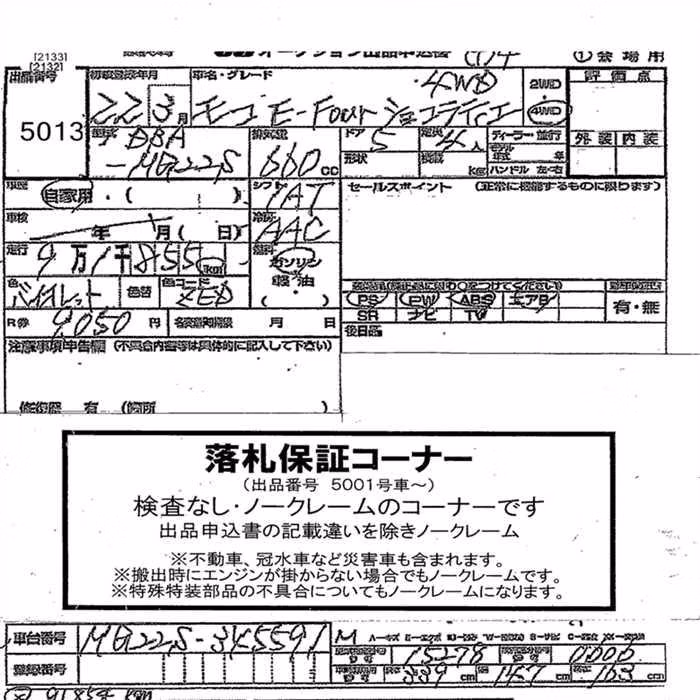 [2133]
[2132]
オークション出品申込書
①会場用
出品番号
5013
初度登録年月
22 3月
車名・グレード
4WD
モコ E-Four ショコラティエ
2WD
・
4WD
評価点
外装 内装
型式 DBA
-MG22S
排気量
660cc
ドア 5
形状
定員 4人
積載 kg
ディーラー・並行
モデル
年式 年
ハンドル 左・右
車歴
自家用・( )
シフト
IAT
セールスポイント (正常に機能するものに限ります)
車検
年 月( 日)
冷房
AAC
走行
9万1千855km
燃料
ガソリン
軽油
( )
色
バイオレット
色替
色コード
ZED
PS PW ABS エアB
SR ナビ TV
有・無
R券 9,050円
名変期限 月 日
後日品
注意事項申告欄 (不具合内容等は具体的に記入して下さい)
修復歴 有 (箇所 )
落札保証コーナー
(出品番号 5001号車~)
検査なし・ノークレームのコーナーです
出品申込書の記載違いを除きノークレーム
※不動車、冠水車など災害車も含まれます。
※搬出時にエンジンが掛からない場合でもノークレームです。
※特殊特装部品の不具合についてもノークレームになります。
車台番号 MG22S-345591
M
15278
0000
登録番号
339cm 147cm 163cm
91854km